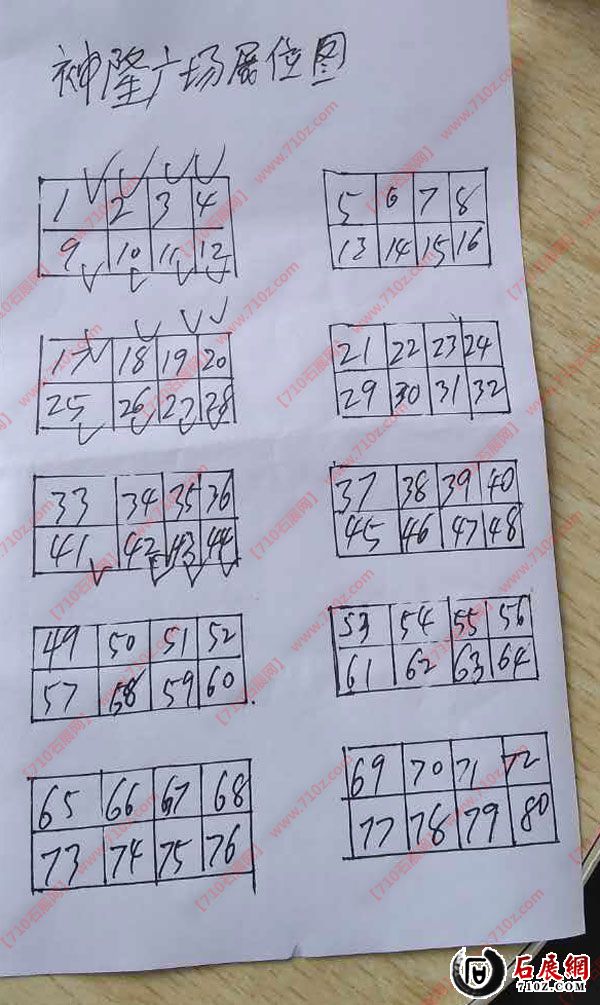 神隆广场展位图
1 2 3 4 5 6 7 8
9 10 11 12 13 14 15 16
17 18 19 20 21 22 23 24
25 26 27 28 29 30 31 32
33 34 35 36 37 38 39 40
41 42 43 44 45 46 47 48
49 50 51 52 53 54 55 56
57 58 59 60 61 62 63 64
65 66 67 68 69 70 71 72
73 74 75 76 77 78 79 80
【710石展网】 www.710z.com
石展網
710Z.COM